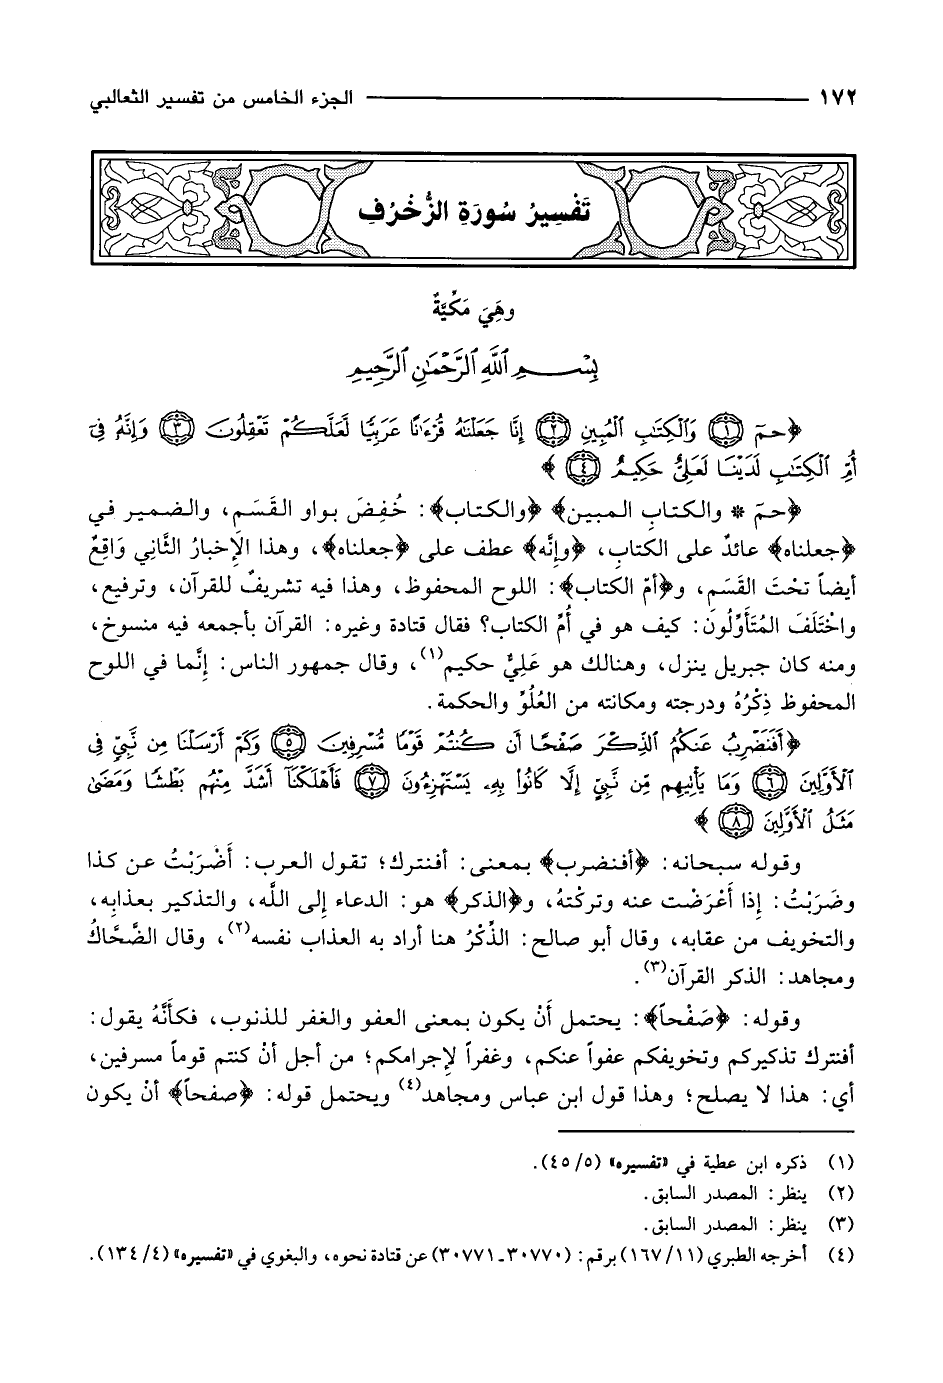 ١٧٢ الجزء الخامس من تفسير الثعالبي
تَفْسِيرُ سُورَةِ الزُّخْرُفِ
وهِيَ مَكِّيَّةٌ
بِسْمِ اللَّهِ الرَّحْمَٰنِ الرَّحِيمِ
﴿حمٓ ١ وَٱلْكِتَٰبِ ٱلْمُبِينِ ٢ إِنَّا جَعَلْنَٰهُ قُرْءَٰنًا عَرَبِيًّا لَّعَلَّكُمْ تَعْقِلُونَ ٣ وَإِنَّهُۥ فِىٓ
أُمِّ ٱلْكِتَٰبِ لَدَيْنَا لَعَلِىٌّ حَكِيمٌ ٤﴾
﴿حمٓ * والكتابِ المبين﴾ ﴿والكتاب﴾: خُفِضَ بواو القَسَم، والضمير في
﴿جعلناه﴾ عائدٌ على الكتاب، ﴿وإنَّه﴾ عطف على ﴿جعلناه﴾، وهذا الإخبارُ الثَّانِي وَاقِعٌ
أيضاً تحْتَ القَسَم، و﴿أمّ الكتاب﴾: اللوح المحفوظ، وهذا فيه تشريفٌ للقرآن، وترفيع،
واخْتَلَفَ المُتَأَوِّلُونَ: كيف هو في أُمِّ الكتاب؟ فقال قتادة وغيره: القرآن بأجمعه فيه منسوخ،
ومنه كان جبريل ينزل، وهنالك هو عَلِيٌّ حكيم(١)، وقال جمهور الناس: إنَّما في اللوح
المحفوظ ذِكْرُهُ ودرجته ومكانته من العُلُوِّ والحكمة.
﴿أَفَنَضْرِبُ عَنكُمُ ٱلذِّكْرَ صَفْحًا أَن كُنتُمْ قَوْمًا مُّسْرِفِينَ ٥ وَكَمْ أَرْسَلْنَا مِن نَّبِىٍّ فِى
ٱلْأَوَّلِينَ ٦ وَمَا يَأْتِيهِم مِّن نَّبِىٍّ إِلَّا كَانُوا۟ بِهِۦ يَسْتَهْزِءُونَ ٧ فَأَهْلَكْنَآ أَشَدَّ مِنْهُم بَطْشًا وَمَضَىٰ
مَثَلُ ٱلْأَوَّلِينَ ٨﴾
وقوله سبحانه: ﴿أفنضرب﴾ بمعنى: أفنترك؛ تقول العرب: أَضْرَبْتُ عن كذا
وضَرَبْتُ: إذا أَعْرَضْت عنه وتركتهُ، و﴿الذكر﴾ هو: الدعاء إلى اللَّه، والتذكير بعذابِه،
والتخويف من عقابه، وقال أبو صالح: الذِّكْرُ هنا أراد به العذاب نفسه(٢)، وقال الضَّحَّاكُ
ومجاهد: الذكر القرآن(٣).
وقوله: ﴿صَفْحاً﴾: يحتمل أَنْ يكون بمعنى العفو والغفر للذنوب، فكأَنَّهُ يقول:
أفنترك تذكيركم وتخويفكم عفواً عنكم، وغفراً لإجرامكم؛ من أجل أنْ كنتم قوماً مسرفين،
أي: هذا لا يصلح؛ وهذا قول ابن عباس ومجاهد(٤) ويحتمل قوله: ﴿صفحاً﴾ أنْ يكون
(١) ذكره ابن عطية في «تفسيره» (٥/ ٤٥).
(٢) ينظر: المصدر السابق.
(٣) ينظر: المصدر السابق.
(٤) أخرجه الطبري (١١/ ١٦٧) برقم: (٣٠٧٧٠ـ ٣٠٧٧١) عن قتادة نحوه، والبغوي في «تفسيره» (٤/ ١٣٤).